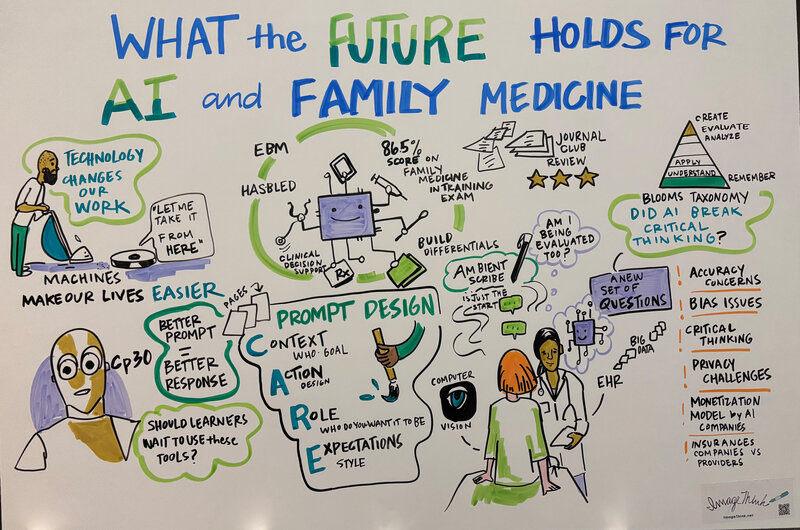 WHAT the FUTURE HOLDS FOR
AI and FAMILY MEDICINE
TECHNOLOGY
CHANGES
OUR
WORK
"LET ME
TAKE IT
FROM
HERE"
MACHINES
MAKE OUR LIVES EASIER
EBM
HASBLED
86.5%
SCORE ON
FAMILY
MEDICINE
IN TRAINING
EXAM
CLINICAL
DECISION
SUPPORT
Rx
BUILD
DIFFERENTIALS
JOURNAL
CLUB
REVIEW
CREATE
EVALUATE
ANALYZE
APPLY
UNDERSTAND
REMEMBER
BLOOMS TAXONOMY
DID AI BREAK
CRITICAL
THINKING?
Cp30
BETTER
PROMPT
=
BETTER
RESPONSE
SHOULD LEARNERS
WAIT TO USE these
TOOLS?
PAGES
PROMPT DESIGN
CONTEXT
WHO · GOAL
ACTION
DESIGN
ROLE
WHO DO YOU WANT IT TO BE
EXPECTATIONS
STYLE
AMBIENT
SCRIBE
IS JUST THE
START
AM I
BEING
EVALUATED
TOO?
COMPUTER
VISION
A NEW
SET OF
QUESTIONS
BIG
DATA
EHR
ACCURACY
CONCERNS
BIAS ISSUES
CRITICAL
THINKING
PRIVACY
CHALLENGES
MONETIZATION
MODEL by AI
COMPANIES
INSURANCES
COMPANIES VS
PROVIDERS
ImageThink
imagethink.net